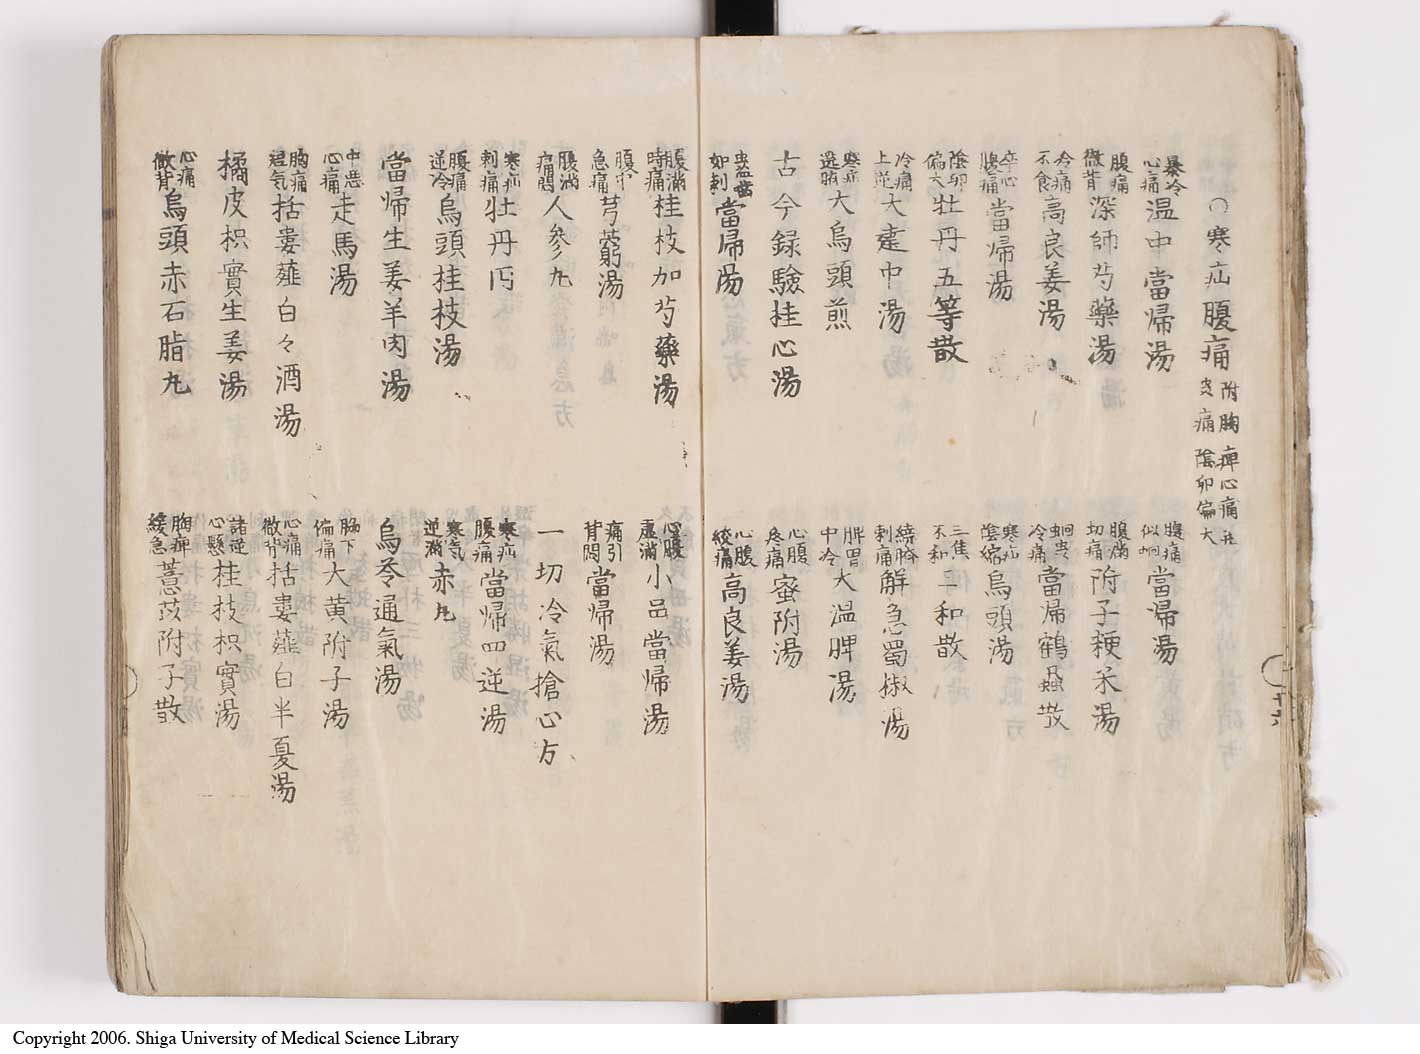 ○寒疝腹痛 附胸痺心痛並虫痛陰卵偏大
暴冷心痛 温中當帰湯
腹痛似蚵 當帰湯
腹痛徹背 深師芍藥湯
腹満切痛 附子粳米湯
冷痛不食 高良姜湯
蚵虫冷痛 當帰鶴虱散
卒心腹痛 當帰湯
寒疝陰縮 烏頭湯
陰卯偏大 牡丹五等散
三焦不和 千和散
冷痛上逆 大建中湯
繞臍刺痛 解急蜀椒湯
寒疝遶臍 大烏頭煎
脾胃中冷 大温脾湯
古今録驗桂心湯
心腹疼痛 蜜附湯
虫齒如刺 當帰湯
心腹絞痛 高良姜湯
腹満時痛 桂枝加芍藥湯
心腹虚満 小品當帰湯
腹中急痛 芎藭湯
痛引背悶 當帰湯
腹満痛悶 人參丸
一切冷氣搶心方
寒疝刺痛 牡丹丹
寒疝腹痛 當帰四逆湯
腹痛逆冷 烏頭桂枝湯
寒気逆満 赤丸
當帰生姜羊肉湯
烏苓通氣湯
中悪心痛 走馬湯
脇下偏痛 大黄附子湯
胸痛短気 括蔞薤白々酒湯
心痛徹背 括蔞薤白半夏湯
橘皮枳實生姜湯
諸逆心懸 桂枝枳實湯
心痛徹背 烏頭赤石脂丸
胸痺緩急 薏苡附子散
十六